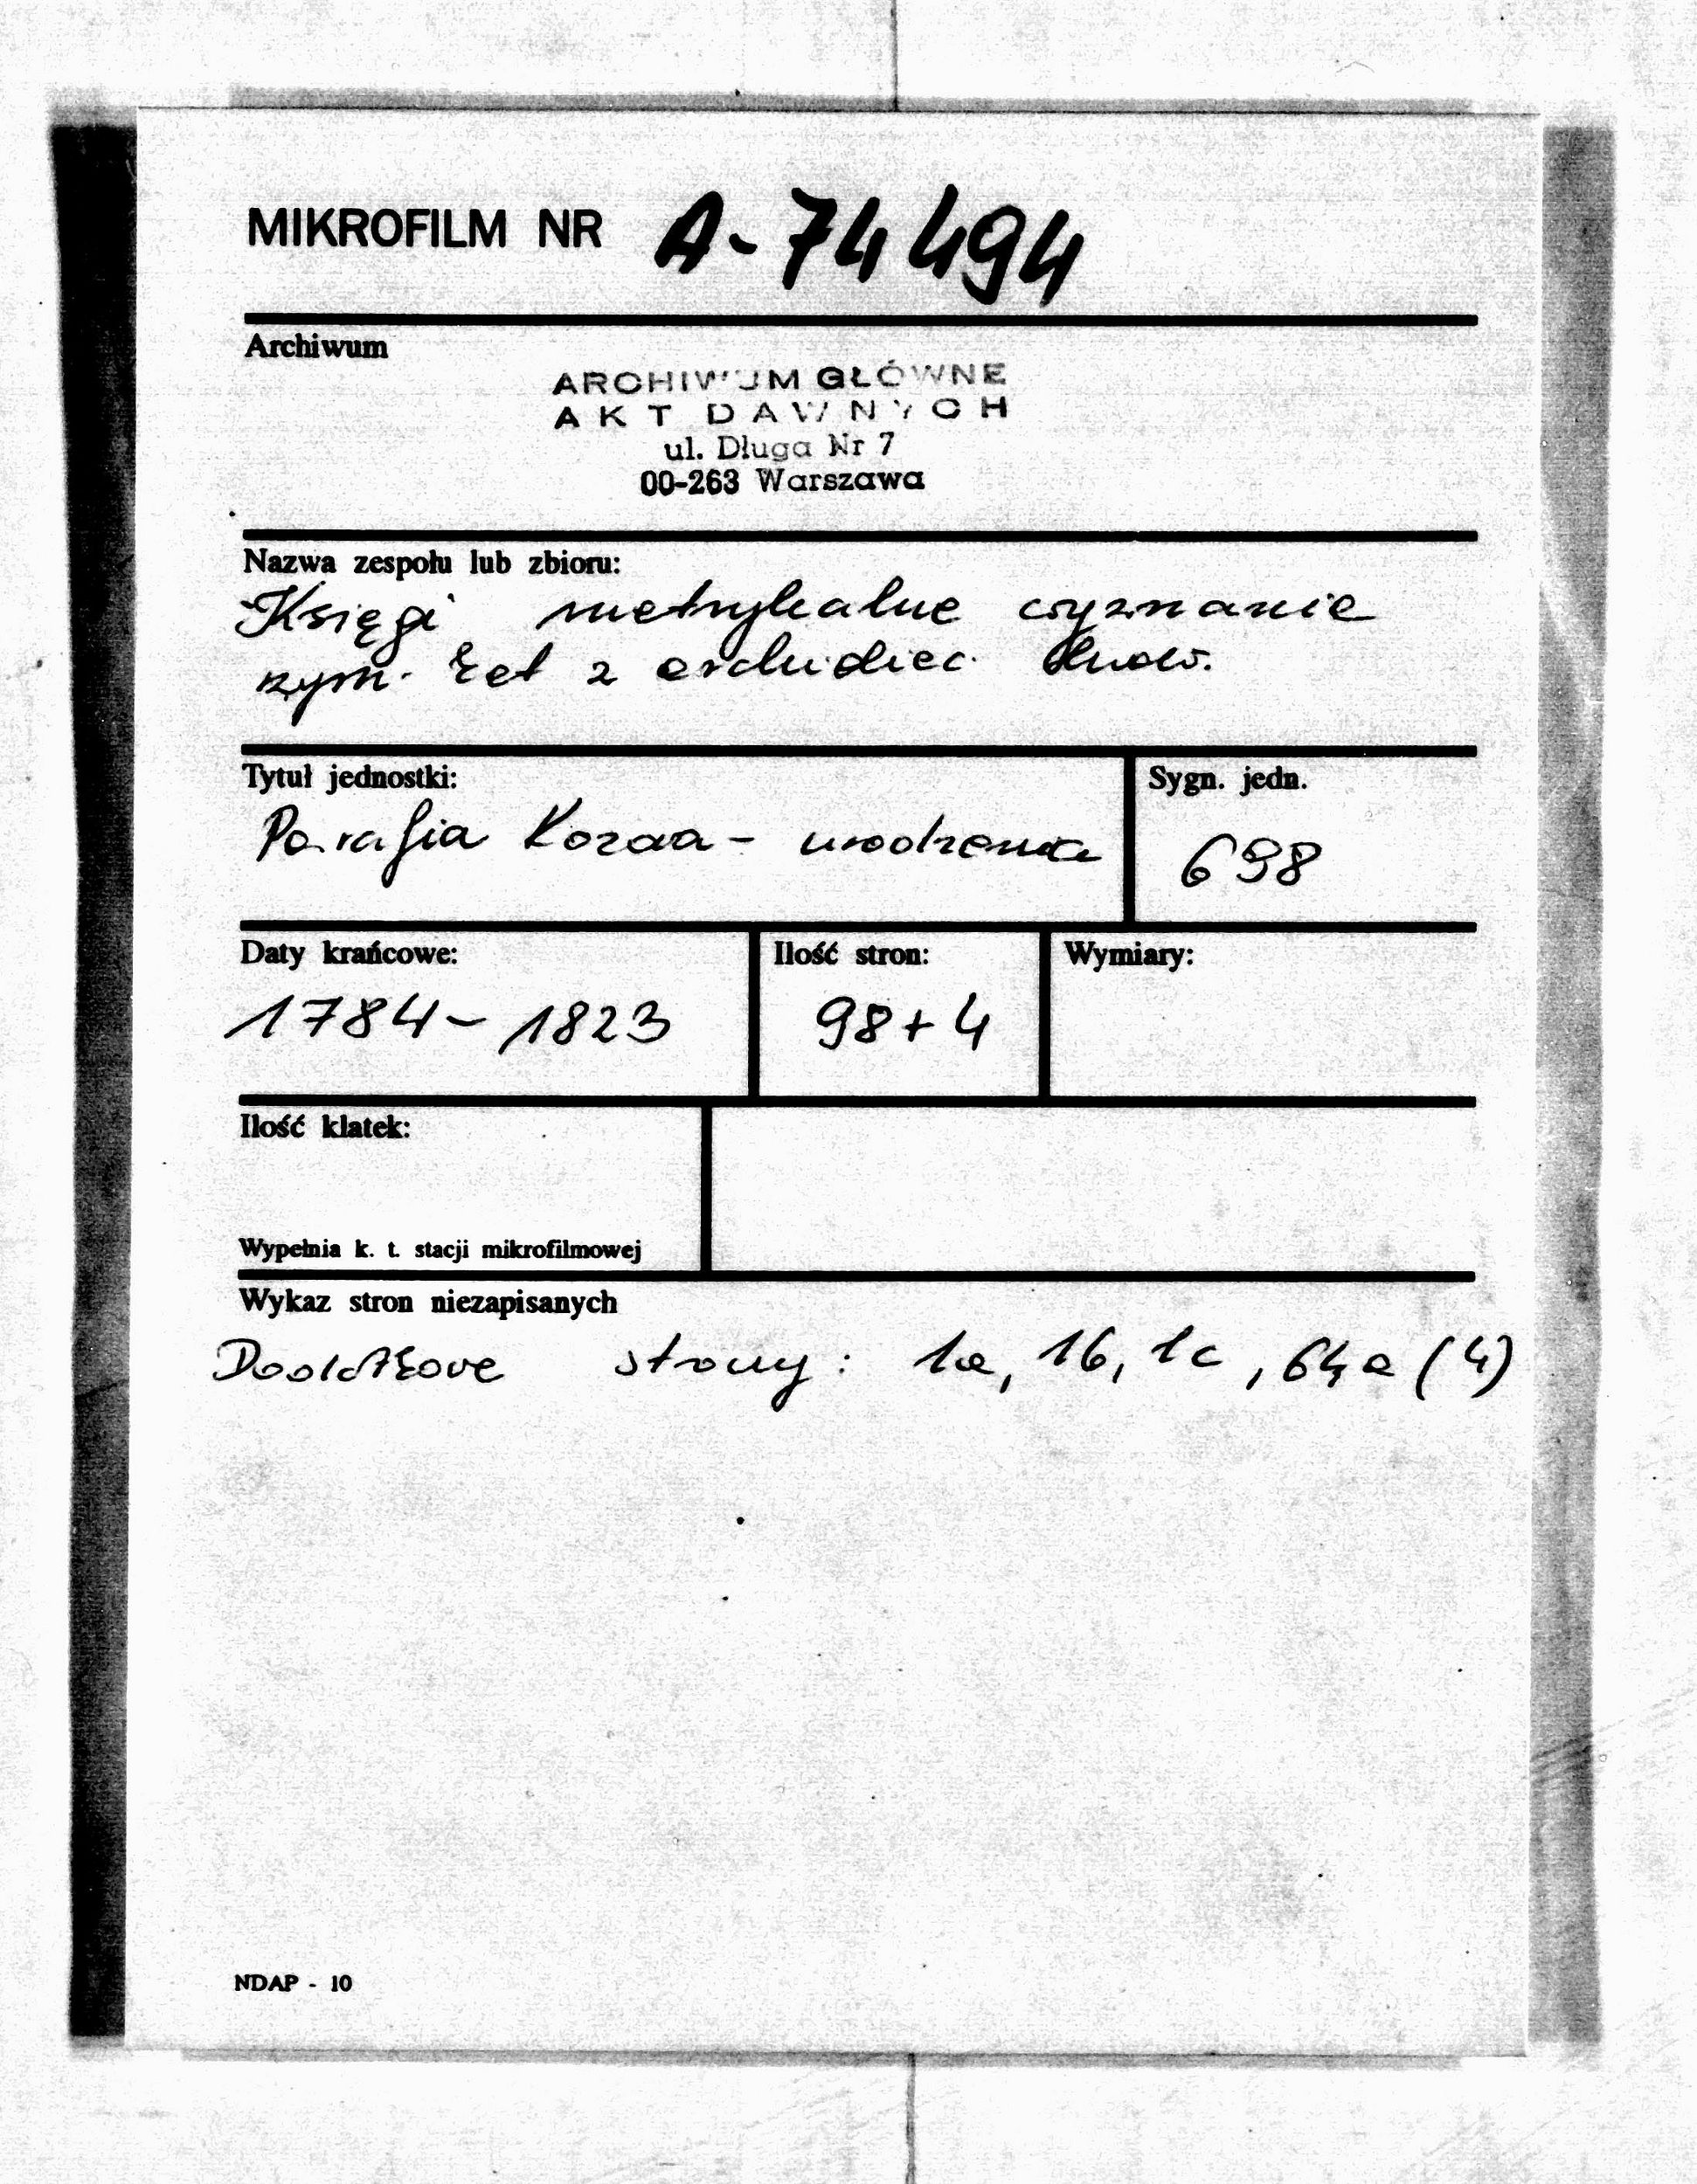 MIKROFILM NR A-74494
Archiwum
ARCHIWUM GŁÓWNE
AKT DAWNYCH
ul. Długa Nr 7
00-263 Warszawa
Nazwa zespołu lub zbioru:
Księgi metrykalne wyznanie
rzym. kat z archidiec. lwow.
Tytuł jednostki:
Parafia Kozowa - urodzenia
Sygn. jedn.
698
Daty krańcowe:
1784 - 1823
Ilość stron:
98 + 4
Wymiary:
Ilość klatek:
Wypełnia k. t. stacji mikrofilmowej
Wykaz stron niezapisanych
Dodatkowe strony: 1a, 1b, 1c, 64a (4)
NDAP - 10